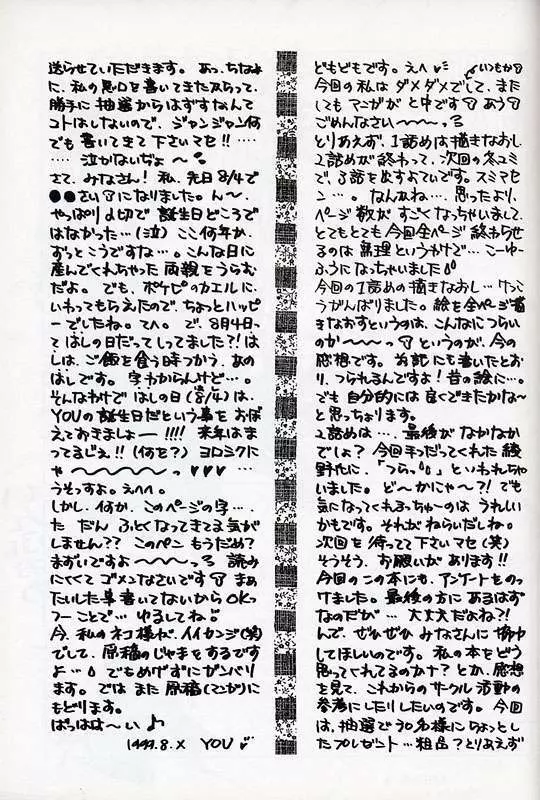 どもどもです。えへ いつもか
今回の私は ダメダメでして、また
しても マンガが と中です あう
ごめんなさい〜〜っ
とりあえず、1話めは 描きなおし
2話めが 終わって、次回の冬コミ
で、3話を 出すよていです。スミマセ
ン…。 なんかね…。思ったより、
ページ数が すごくなっちゃいまして、
とてもとても 今回全ページ 終わらせ
るのは 無理というわけで… こーゆー
ふうになっちゃいました
今回の1話めの描きなおし… けっこ
うがんばりました。絵を全ページ描
きなおすというのは、こんなにつらい
のか〜〜〜っ というのが、今の
感想です。 にも書いたとお
り、つられるんですよ!昔の絵に…。
でも 自分的には 良くできたかな〜
と思っちょります。
2話めは…、最後がなかなか
でしょ? 今回手つだってくれた綾
野代に、「つらっ」といわれちゃ
いました。ど〜かにゃ〜?! でも
気になってくれちゃうのは うれしい
かもです。それが ねらいだしね。
次回を 待ってて下さいマセ(笑)
そうそう、お願いが あります!!
今回の この本にも、アンケートをのっ
けました。最後の方に あるはず
なのだが… 大丈夫だよね?!
んで、ぜひぜひ みなさんに
してほしいのです。私の本を どう
思ってくれてるのかナ? とか、感想
を見て、これからのサークル活動の
参考にしたりしたいのです。今回
は、抽選で30名様に ちょっとし
たプレゼント… 粗品? とりあえず
送らせていただきます。あっ、ちなみ
に、私の悪口を 書いてきたからって、
勝手に 抽選からはずすなんて
コトはしないので、ジャンジャン何
でも 書いてきて下さいマセ!! …
…… 泣かないぢょ〜
さて、みなさん! 私、先日 8/4で
●●さいになりました。ん〜、
やっぱり〆切で 誕生日どころで
はなかった…(泣) ここ何年か、
ずっとこうですな…。こんな日に
産んでくれちゃった 両親をうらむ
だよ。 でも、ポケピのカエルに、
いわってもらえたので、ちょっとハッピ
ーでしたね。でへ。で、8月4日っ
て はしの日だってしってました?! は
しは、ご飯を食う時つかう、あの
はしです。 字わからんけど…。
そんなわけで はしの日(8/4)は、
YOUの誕生日だという事を おぼ
えておきましょー!!!! 来年はま
ってるじぇ!! (何を?) ヨロシクに
ゃ〜〜〜〜〜っ ♥♥♥ …
うそっすよ。えへへ。
しかし、何か、このページの字…、
た だん ふとくなってきてる気が
しません?? このペン もうだめ?
まずいですよ〜〜〜っ 読み
にくくて ゴメンなさいです まぁ
たいした事書いてないから OKっ
つーことで… ゆるしてね
今、私のネコ様が、イイカンジ(笑)
でして、原稿のじゃまをするです
よ… でもめげずにガンバリ
ます。では また 原稿(マンガ)に
もどります。
ばっはは〜い♪
1999.8.X YOU